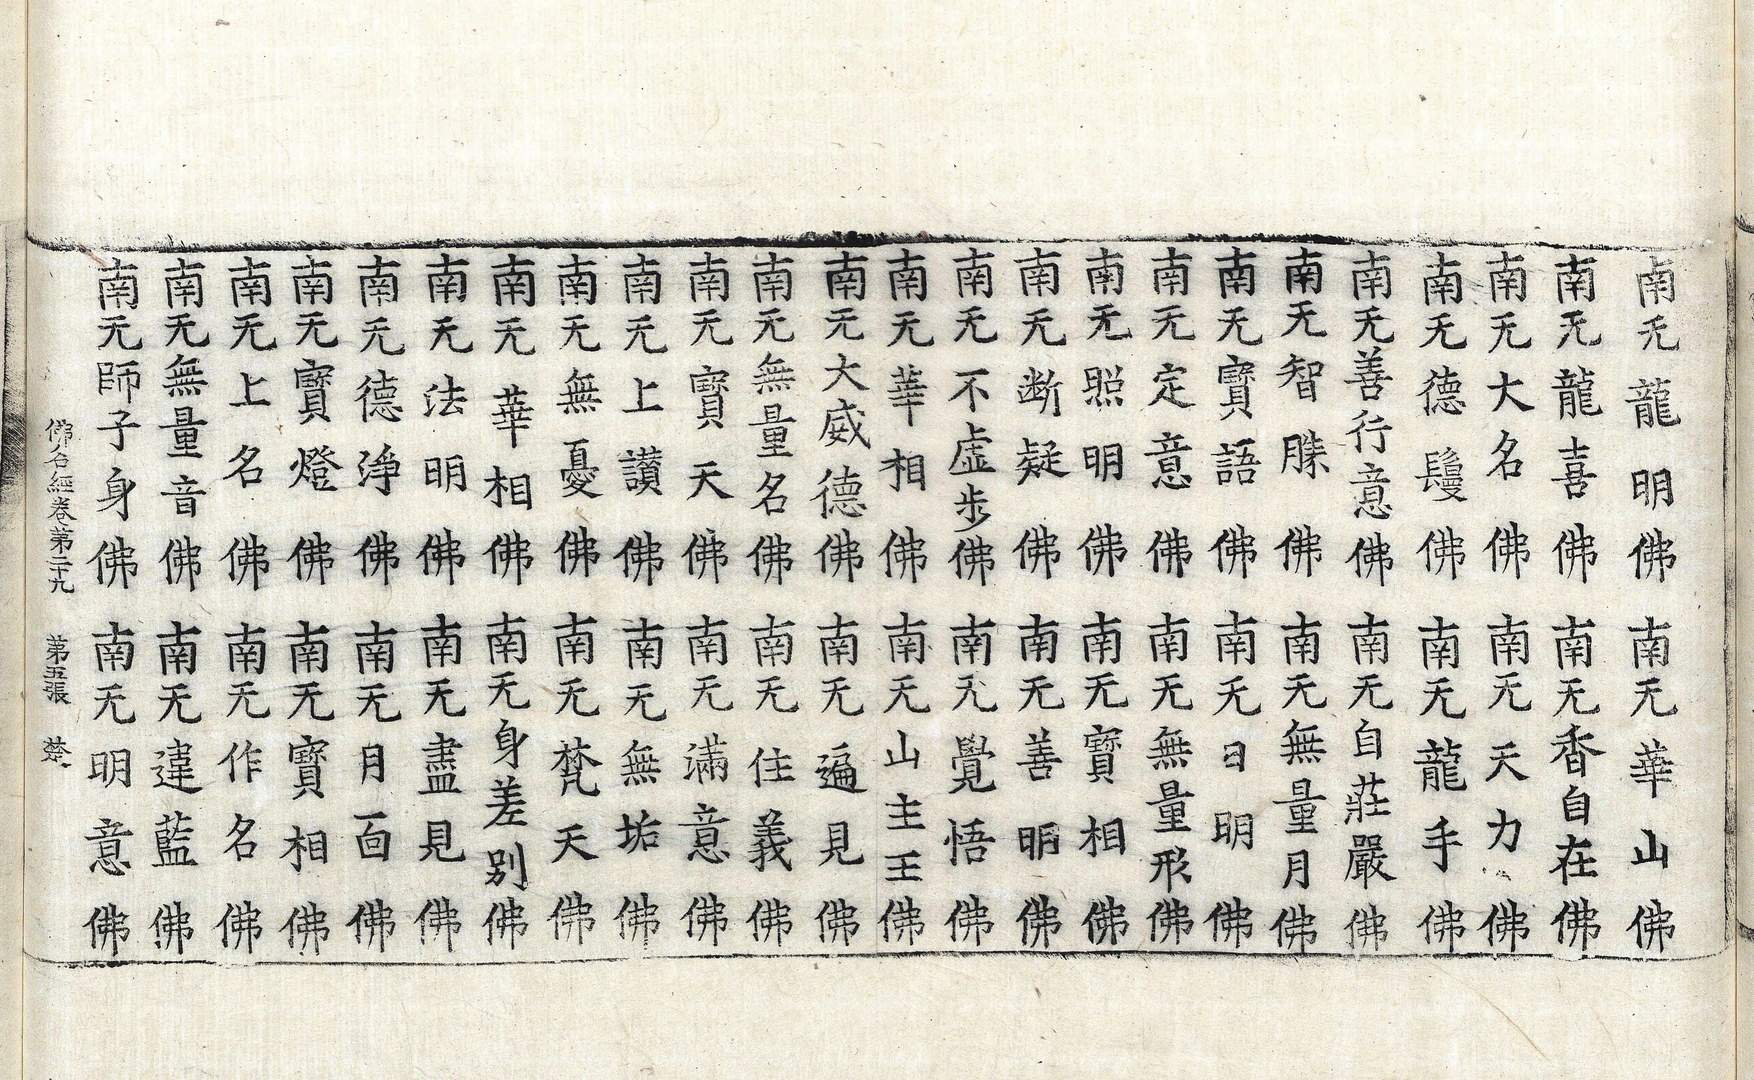 南无龍明佛 南无華山佛
南无龍喜佛 南无香自在佛
南无大名佛 南无天力佛
南无德鬘佛 南无龍手佛
南无善行意佛 南无自莊嚴佛
南无智勝佛 南无無量月佛
南无寶語佛 南无日明佛
南无定意佛 南无無量形佛
南无照明佛 南无寶相佛
南无断疑佛 南无善明佛
南无不虛步佛 南无覺悟佛
南无華相佛 南无山主王佛
南无大威德佛 南无遍見佛
南无無量名佛 南无住義佛
南无寶天佛 南无滿意佛
南无上讃佛 南无無垢佛
南无無憂佛 南无梵天佛
南无華相佛 南无身差別佛
南无法明佛 南无盡見佛
南无德淨佛 南无月面佛
南无寶燈佛 南无寶相佛
南无上名佛 南无作名佛
南无無量音佛 南无違藍佛
南无師子身佛 南无明意佛
佛名經卷第二十九 第五張 楚